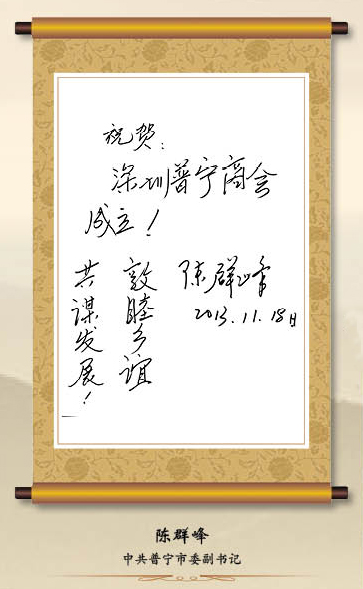 祝贺：
深圳普宁商会
成立！
敦睦乡谊
共谋发展！
陈群峰
2013.11.18日
陈群峰
中共普宁市委副书记